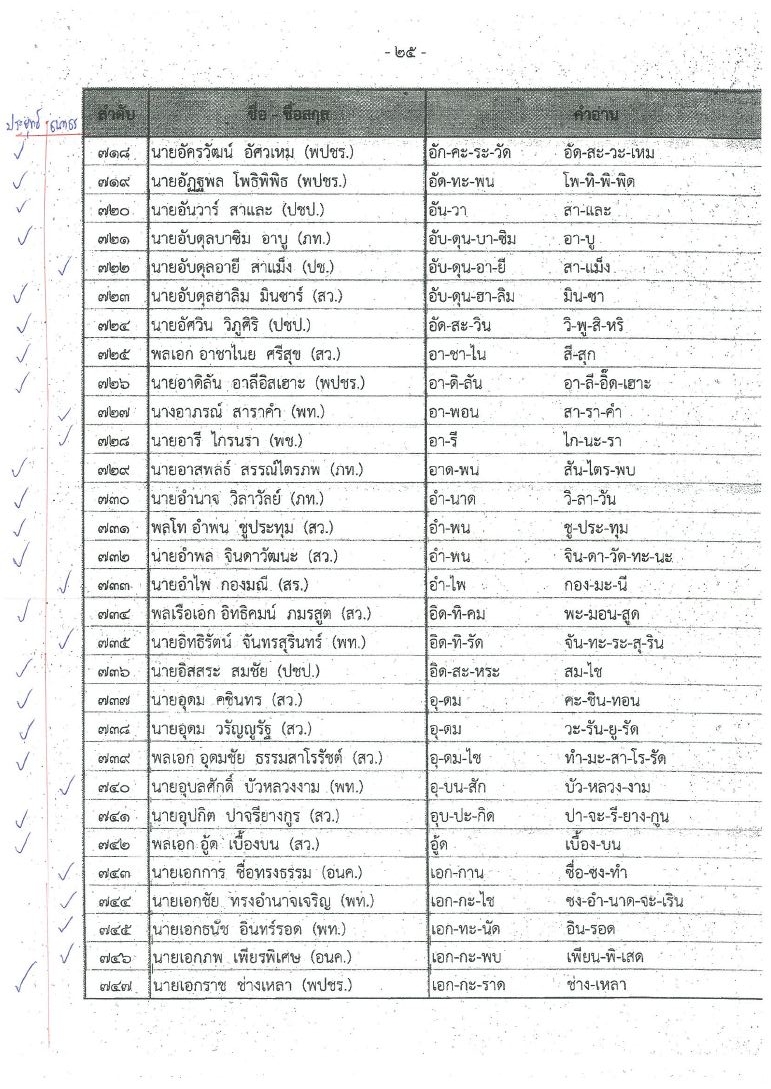 - ๒๕ -
ประยุทธ์ ธนาธร ลำดับ ชื่อ - ชื่อสกุล คำอ่าน
✓ ๗๑๘ นายอัครวัฒน์ อัศวเหม (พปชร.) อัก-คะ-ระ-วัด อัด-สะ-วะ-เหม
✓ ๗๑๙ นายอัฏฐพล โพธิพิพิธ (พปชร.) อัด-ทะ-พน โพ-ทิ-พิ-พิด
✓ ๗๒๐ นายอันวาร์ สาและ (ปชป.) อัน-วา สา-และ
✓ ๗๒๑ นายอับดุลบาซิม อาบู (ภท.) อับ-ดุน-บา-ซิม อา-บู
✓ ๗๒๒ นายอับดุลอายี สาแม็ง (ปช.) อับ-ดุน-อา-ยี สา-แม็ง
✓ ๗๒๓ นายอับดุลฮาลิม มินซาร์ (สว.) อับ-ดุน-ฮา-ลิม มิน-ซา
✓ ๗๒๔ นายอัศวิน วิภูศิริ (ปชป.) อัด-สะ-วิน วิ-พู-สิ-หริ
✓ ๗๒๕ พลเอก อาชาไนย ศรีสุข (สว.) อา-ชา-ไน สี-สุก
✓ ๗๒๖ นายอาดิลัน อาลีอิสเฮาะ (พปชร.) อา-ดิ-ลัน อา-ลี-อิ๊ด-เฮาะ
✓ ๗๒๗ นางอาภรณ์ สาราคำ (พท.) อา-พอน สา-รา-คำ
✓ ๗๒๘ นายอารี ไกรนรา (พช.) อา-รี ไก-นะ-รา
✓ ๗๒๙ นายอาสพลธ์ สรรณ์ไตรภพ (ภท.) อาด-พน สัน-ไตร-พบ
✓ ๗๓๐ นายอำนาจ วิลาวัลย์ (ภท.) อำ-นาด วิ-ลา-วัน
✓ ๗๓๑ พลโท อำพน ชูประทุม (สว.) อำ-พน ชู-ประ-ทุม
✓ ๗๓๒ นายอำพล จินดาวัฒนะ (สว.) อำ-พน จิน-ดา-วัด-ทะ-นะ
✓ ๗๓๓ นายอำไพ กองมณี (สร.) อำ-ไพ กอง-มะ-นี
✓ ๗๓๔ พลเรือเอก อิทธิคมน์ ภมรสูต (สว.) อิด-ทิ-คม พะ-มอน-สูด
✓ ๗๓๕ นายอิทธิรัตน์ จันทรสุรินทร์ (พท.) อิด-ทิ-รัด จัน-ทะ-ระ-สุ-ริน
✓ ๗๓๖ นายอิสสระ สมชัย (ปชป.) อิด-สะ-หระ สม-ไช
✓ ๗๓๗ นายอุดม คชินทร (สว.) อุ-ดม คะ-ชิน-ทอน
✓ ๗๓๘ นายอุดม วรัญญูรัฐ (สว.) อุ-ดม วะ-รัน-ยู-รัด
✓ ๗๓๙ พลเอก อุดมชัย ธรรมสาโรรัชต์ (สว.) อุ-ดม-ไช ทำ-มะ-สา-โร-รัด
✓ ๗๔๐ นายอุบลศักดิ์ บัวหลวงงาม (พท.) อุ-บน-สัก บัว-หลวง-งาม
✓ ๗๔๑ นายอุปกิต ปาจรียางกูร (สว.) อุบ-ปะ-กิด ปา-จะ-รี-ยาง-กูน
✓ ๗๔๒ พลเอก อู้ด เบื้องบน (สว.) อู้ด เบื้อง-บน
✓ ๗๔๓ นายเอกการ ซื่อทรงธรรม (อนค.) เอก-กาน ซื่อ-ซง-ทำ
✓ ๗๔๔ นายเอกชัย ทรงอำนาจเจริญ (พท.) เอก-กะ-ไช ซง-อำ-นาด-จะ-เริน
✓ ๗๔๕ นายเอกธนัช อินทร์รอด (พท.) เอก-ทะ-นัด อิน-รอด
✓ ๗๔๖ นายเอกภพ เพียรพิเศษ (อนค.) เอก-กะ-พบ เพียน-พิ-เสด
✓ ๗๔๗ นายเอกราช ช่างเหลา (พปชร.) เอก-กะ-ราด ช่าง-เหลา